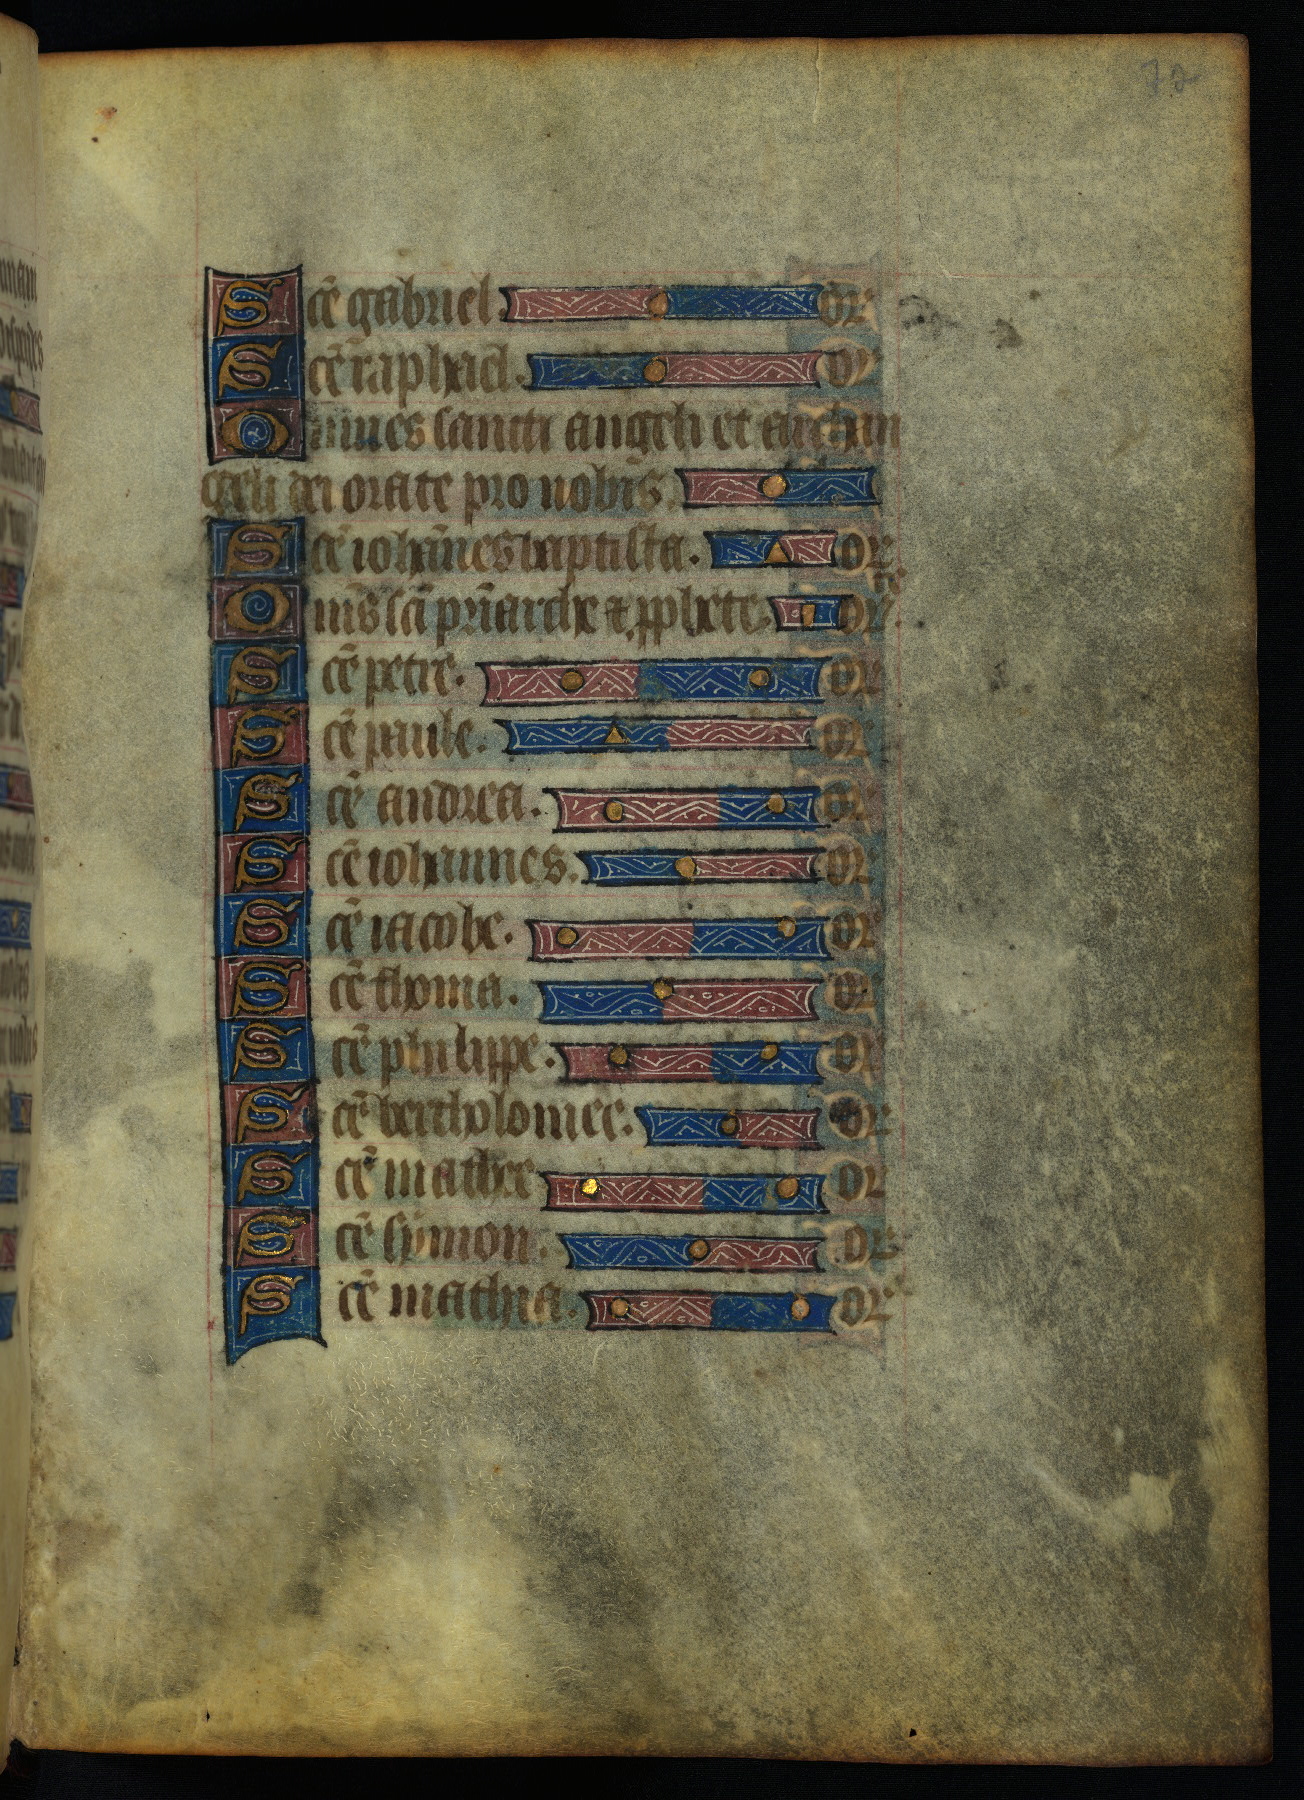 72
Scē gabriel. or
Scē raphael. or
Omnes sancti angeli et archan
geli dei orate pro nobis.
Scē iohānes baptista. or
Omīs scī pr̄iarche ⁊ ꝓphete. or
Scē petre. or
Scē paule. or
Scē andrea. or
Scē iohannes. or
Scē iacobe. or
Scē thoma. or
Scē philippe. or
Scē bertholomee. or
Scē mathee or
Scē symon. or
Scē mathia. or